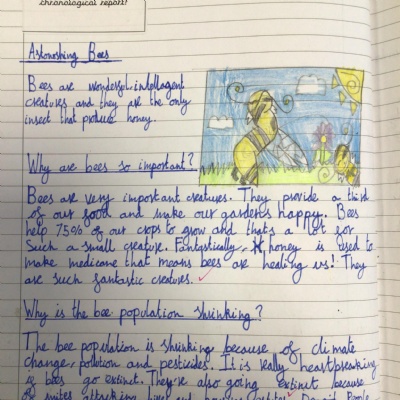 chronological report!
Astonoshing Bees
Bees are wonderful, intellagent
creatures and they are the only
insect that produce honey.
Why are bees so important?
Bees are very important creatures. They provide a third
of our food and make our gardens happy. Bees
help 75% of our crops to grow and that's a lot for
such a small creature. Fantastically, honey is used to
make medicane that means bees are healing us! They
are such fantastic creatures.
Why is the bee population shrinking?
The bee population is shrinking because of climate
change, pollution and pesticides. It is really heartbreaking
if bees go extinct. They're also going extinct because
of mites attacking